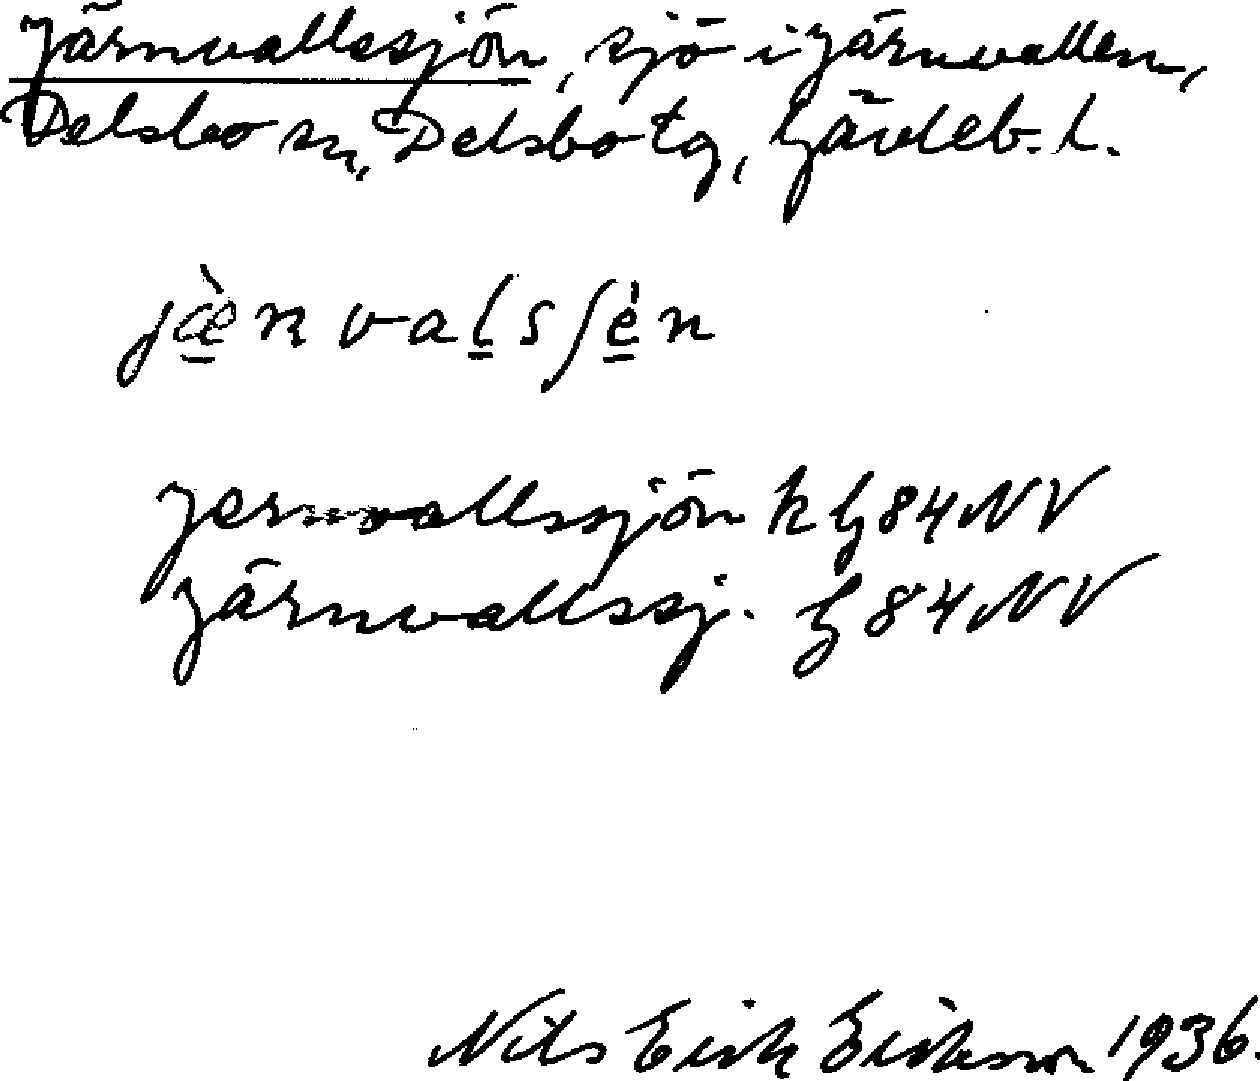 Järnvallssjön, sjö i Järnvallen,
Delsbo sn, Delsbo tg, Gävleb. l.
jæ̀nvalsʃèn
Jernvallssjön k G 84 NV
Järnvallssj. G 84 NV
Nils Erik Eriksson 1936.